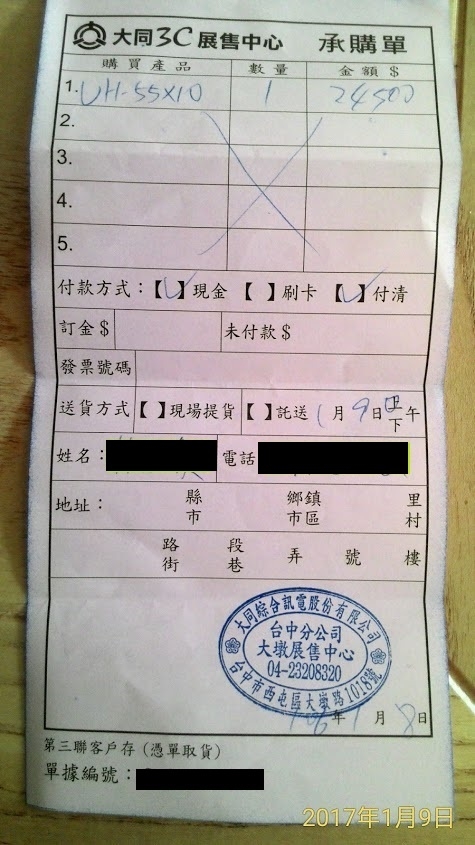 大同3C展售中心 承購單
購買產品 數量 金額$
1. UH-55X10 1 24,500
2.
3.
4.
5.
付款方式：【✓】現金【 】刷卡【✓】付清
訂金$ 未付款$
發票號碼
送貨方式【 】現場提貨【 】託送 1月9日上下午
姓名： 電話
地址： 縣市 鄉鎮市區 里村
路街 段巷 弄 號 樓
大同綜合訊電股份有限公司
台中分公司
大墩展售中心
04-23208320
台中市西屯區大墩路1018號
106年1月8日
第三聯客戶存（憑單取貨）
單據編號：
2017年1月9日